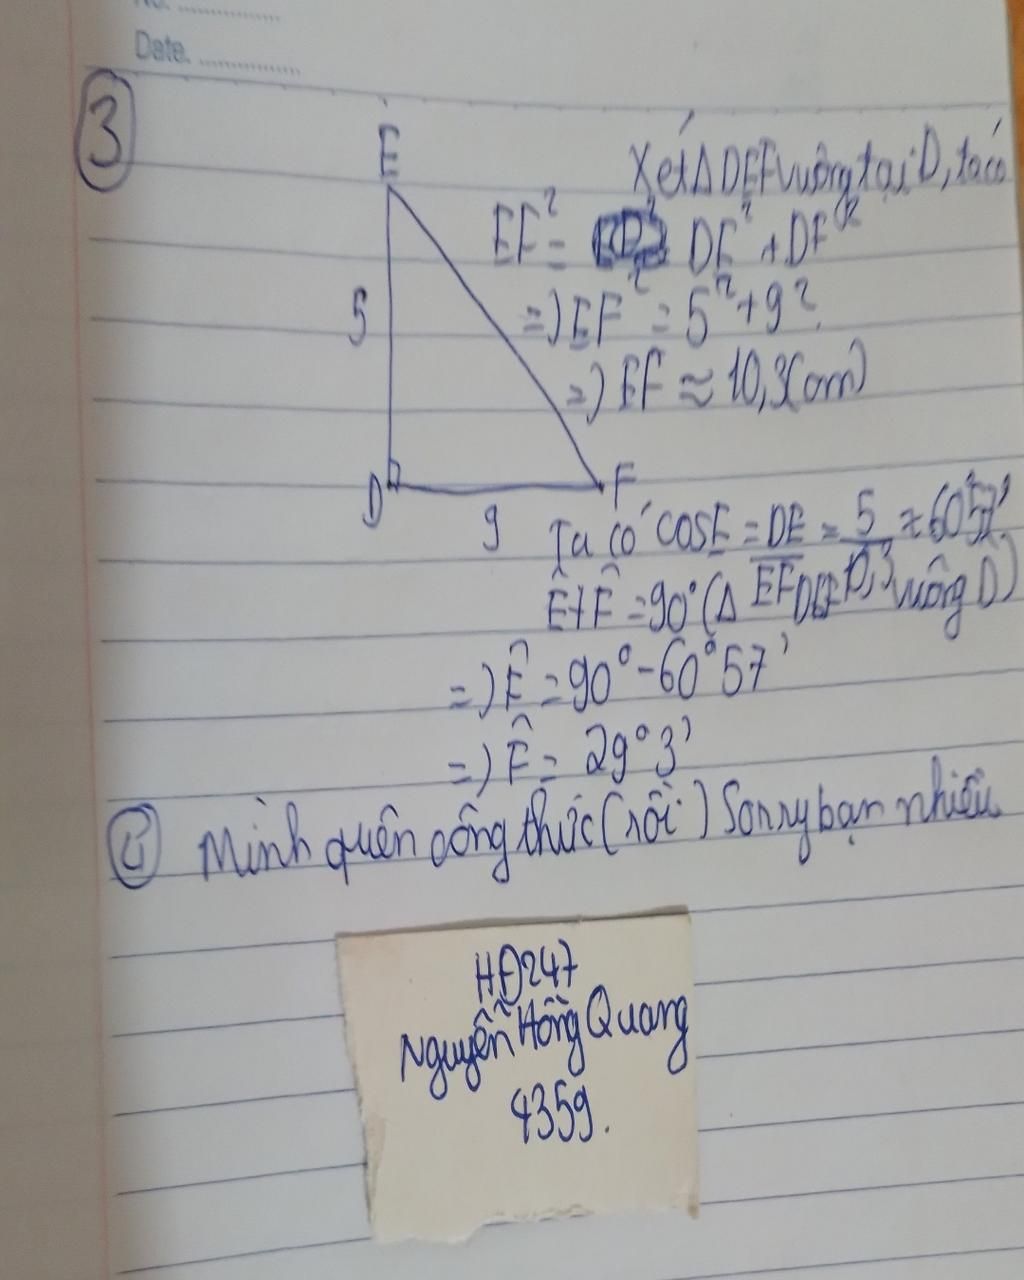 No. ..............
Date. ..............
3
E
Xét Δ DEF vuông tại D, ta có
EF² = DE² + DF²
5
=) EF² = 5² + 9²
=) EF ≈ 10,3(cm)
D
F
9
Ta có cosE = DE/EF = 5/10,3 ≈ 60°57'
Ê + F̂ = 90° (Δ DEF vuông D)
=) F̂ = 90° - 60°57'
=) F̂ = 29°3'
4 Mình quên công thức (rồi) Sorry bạn nhiều
HĐ247
Nguyễn Hồng Quang
4359.